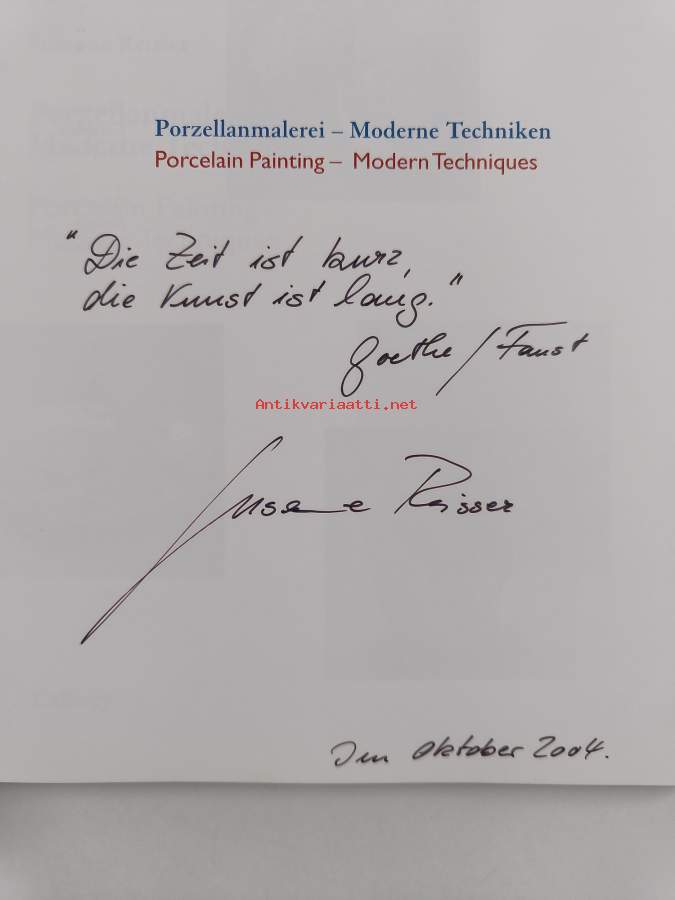 Porzellanmalerei – Moderne Techniken
Porcelain Painting – Modern Techniques
"Die Zeit ist kurz,
die Kunst ist lang."
Goethe / Faust
Antikvariaatti.net
Susanne Reisser
Im Oktober 2004.